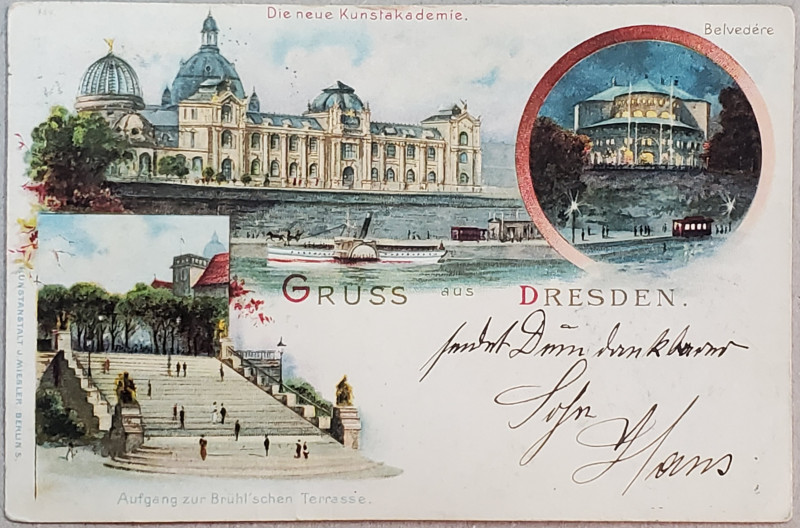 Die neue Kunstakademie.
Belvedére
GRUSS aus DRESDEN.
sendet Dein dankbarer
Sohn
Hans
Aufgang zur Brühl'schen Terrasse.
KUNSTANSTALT J. MIESLER, BERLIN S.